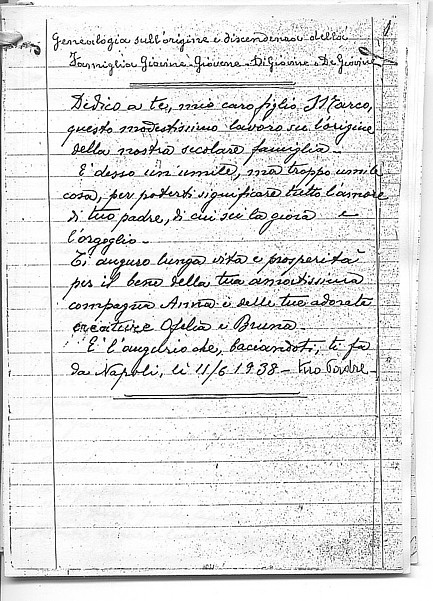 1
Genealogia sull'origine e discendenza della
Famiglia Giovine-Giovene-Di Giovine-De Giovine
Dedico a te, mio caro figlio Marco,
questo modestissimo lavoro su l'origine
della nostra secolare famiglia.
È desso un umile, ma troppo umile
cosa, per poterti significare tutto l'amore
di tuo padre, di cui sei la gioia e
l'orgoglio.
Ti auguro lunga vita e prosperità
per il bene della tua amatissima
compagna Anna e delle tue adorate
creature Ofelia e Bruna.
È l'augurio che, baciandoti, ti fa
da Napoli, lì 11/6 1938 - tuo Padre.